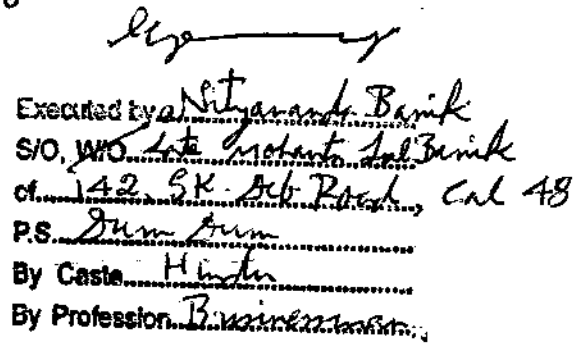 Executed by Nityananda Banik
S/O, W/O Late Mohanta Lal Banik
of 142, S.K. Deb Road, Cal 48
P.S. Dum Dum
By Caste Hindu
By Profession Businessman